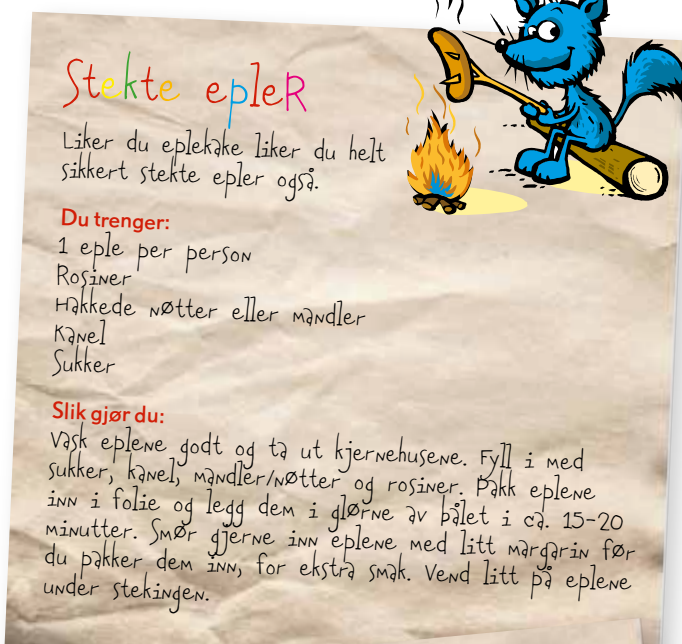 Stekte epler
Liker du eplekake liker du helt
sikkert stekte epler også.
Du trenger:
1 eple per person
Rosiner
Hakkede nøtter eller mandler
Kanel
Sukker
Slik gjør du:
Vask eplene godt og ta ut kjernehusene. Fyll i med
sukker, kanel, mandler/nøtter og rosiner. Pakk eplene
inn i folie og legg dem i glørne av bålet i ca. 15-20
minutter. Smør gjerne inn eplene med litt margarin før
du pakker dem inn, for ekstra smak. Vend litt på eplene
under stekingen.